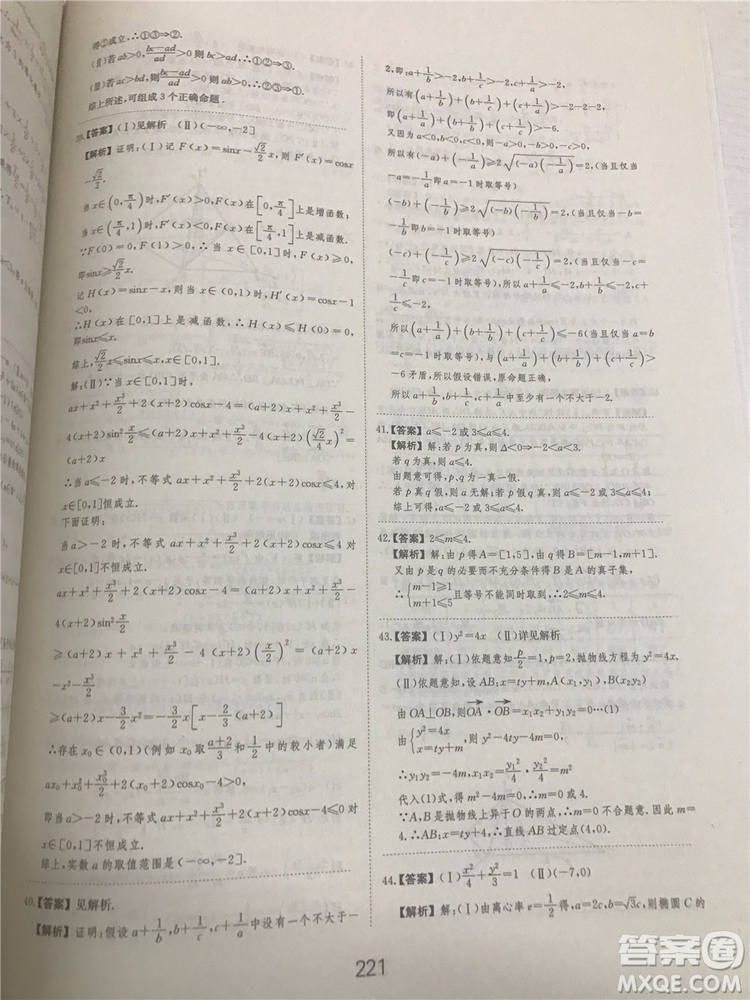 得②成立,∴①③⇒②.
(Ⅱ)若ab>0,(bc-ad)/(ad)>0则bc>ad,∴①②⇒③.
(Ⅲ)若ac>bd,(bc-ad)/(ad)>0则ab>0,∴②③⇒①.
综上所述,可组成3个正确命题.
39.【答案】(Ⅰ)见解析 (Ⅱ)(-∞,-2]
【解析】证明:(Ⅰ)记F(x)=sinx-(√2/2)x,则F′(x)=cosx
-√2/2.
当x∈(0,π/4)时,F′(x)>0,F(x)在[0,π/4]上是增函数;
当x∈(π/4,1)时,F′(x)<0,F(x)在[π/4,1]上是减函数.
∵F(0)=0,F(1)>0,∴当x∈[0,1]时,F(x)≥0,
即sinx≥(√2/2)x.
记H(x)=sinx-x,当x∈(0,1)时,H′(x)=cosx-1
<0,
∴H(x)在[0,1]上是减函数,∴H(x)≤H(0)=0,
即sinx≤x.
综上,(√2/2)x≤sinx≤x,x∈[0,1].
解:(Ⅱ)∵当x∈[0,1]时,
ax+x²+x³/2+2(x+2)cosx-4=(a+2)x+x²+x³/2-
4(x+2)sin²(x/2)≤(a+2)x+x²+x³/2-4(x+2)((√2/4)x)²=
(a+2)x.
∴当a≤-2时,不等式ax+x²+x³/2+2(x+2)cosx≤4,对
x∈[0,1]恒成立.
下面证明:
当a>-2时,不等式ax+x²+x³/2+2(x+2)cosx≤4对
x∈[0,1]不恒成立.
ax+x²+x³/2+2(x+2)cosx-4=(a+2)x+x²+x³/2-
4(x+2)sin²(x/2)
≥(a+2)x+x²+x³/2-4(x+2)(x/2)²=(a+2)x
-x²-x³/2
≥(a+2)x-(3/2)x²=-(3/2)x[x-(2/3)(a+2)]
∴存在x₀∈(0,1)(例如x₀取(a+2)/3和1/2中的较小者)满足
ax₀+x₀²+x₀³/2+2(x₀+2)cosx₀-4>0,
即当a>-2时,不等式ax+x²+x³/2+2(x+2)cosx-4≤0对
x∈[0,1]不恒成立.
综上,实数a的取值范围是(-∞,-2].
40.【答案】见解析.
【解析】证明:假设a+1/b,b+1/c,c+1/a中没有一个不大于-
2,即:a+1/b>-2,b+1/c>-2,c+1/a>-2,
所以有(a+1/b)+(b+1/c)+(c+1/a)>-2-2-2,
即(a+1/b)+(b+1/c)+(c+1/a)>-6.
又因为a<0,b<0,c<0,
所以有(-a)+(-1/a)≥2√((-a)(-1/a))=2,(当且仅当
-a=-1/a即a=-1时取等号)
(-b)+(-1/b)≥2√((-b)(-1/b))=2,(当且仅当-b=
-1/b即b=-1时取等号)
(-c)+(-1/c)≥2√((-c)(-1/c))=2,(当且仅当-c=
-1/c即c=-1时取等号),所以a+1/a≤-2,b+1/b≤-2,c+
1/c≤-2,
所以(a+1/b)+(b+1/c)+(c+1/a)≤-6(当且仅当a=b
=c=-1时取等号)与(a+1/b)+(b+1/c)+(c+1/a)>
-6矛盾,所以假设错误,原命题正确,
所以a+1/b,b+1/c,c+1/a中至少有一个不大于-2.
41.【答案】a≤-2或3≤a≤4.
【解析】解:若p为真,则Δ<0⇒-2<a<3.
若q为真,则a≤4.
由题意可得,p、q一真一假.
若p真q假,则a无解;若p假q真,则a≤-2或3≤a≤4;
综上可得,a≤-2或3≤a≤4.
42.【答案】2≤m≤4.
【解析】解:由p得A=[1,5],由q得B=[m-1,m+1].
又由p是q的必要而不充分条件得B是A的真子集,
∴{m-1≥1
m+1≤5且等号不能同时取到,∴2≤m≤4.
43.【答案】(Ⅰ)y²=4x (Ⅱ)详见解析
【解析】解:(Ⅰ)依题意知p/2=1,p=2,抛物线方程为y²=4x.
(Ⅱ)依题意,设AB:x=ty+m,A(x₁,y₁),B(x₂,y₂)
由OA⊥OB,则OA→·OB→=x₁x₂+y₁y₂=0…(1)
由{y²=4x
x=ty+m,则y²-4ty-4m=0,
∴y₁y₂=-4m,x₁x₂=y₁²/4·y₂²/4=m²
代入(1)式,得m²-4m=0,∴m=4或m=0.
∵A,B是抛物线上异于O的两点,∴m=0不合题意,∴m=
4.∴AB:x=ty+4,∴直线AB过定点(4,0).
44.【答案】(Ⅰ)x²/4+y²/3=1 (Ⅱ)(-7,0)
【解析】解:(Ⅰ)由离心率e=1/2,得a=2c,b=√3c,则椭圆C的
221
答案圈
MXQE.COM